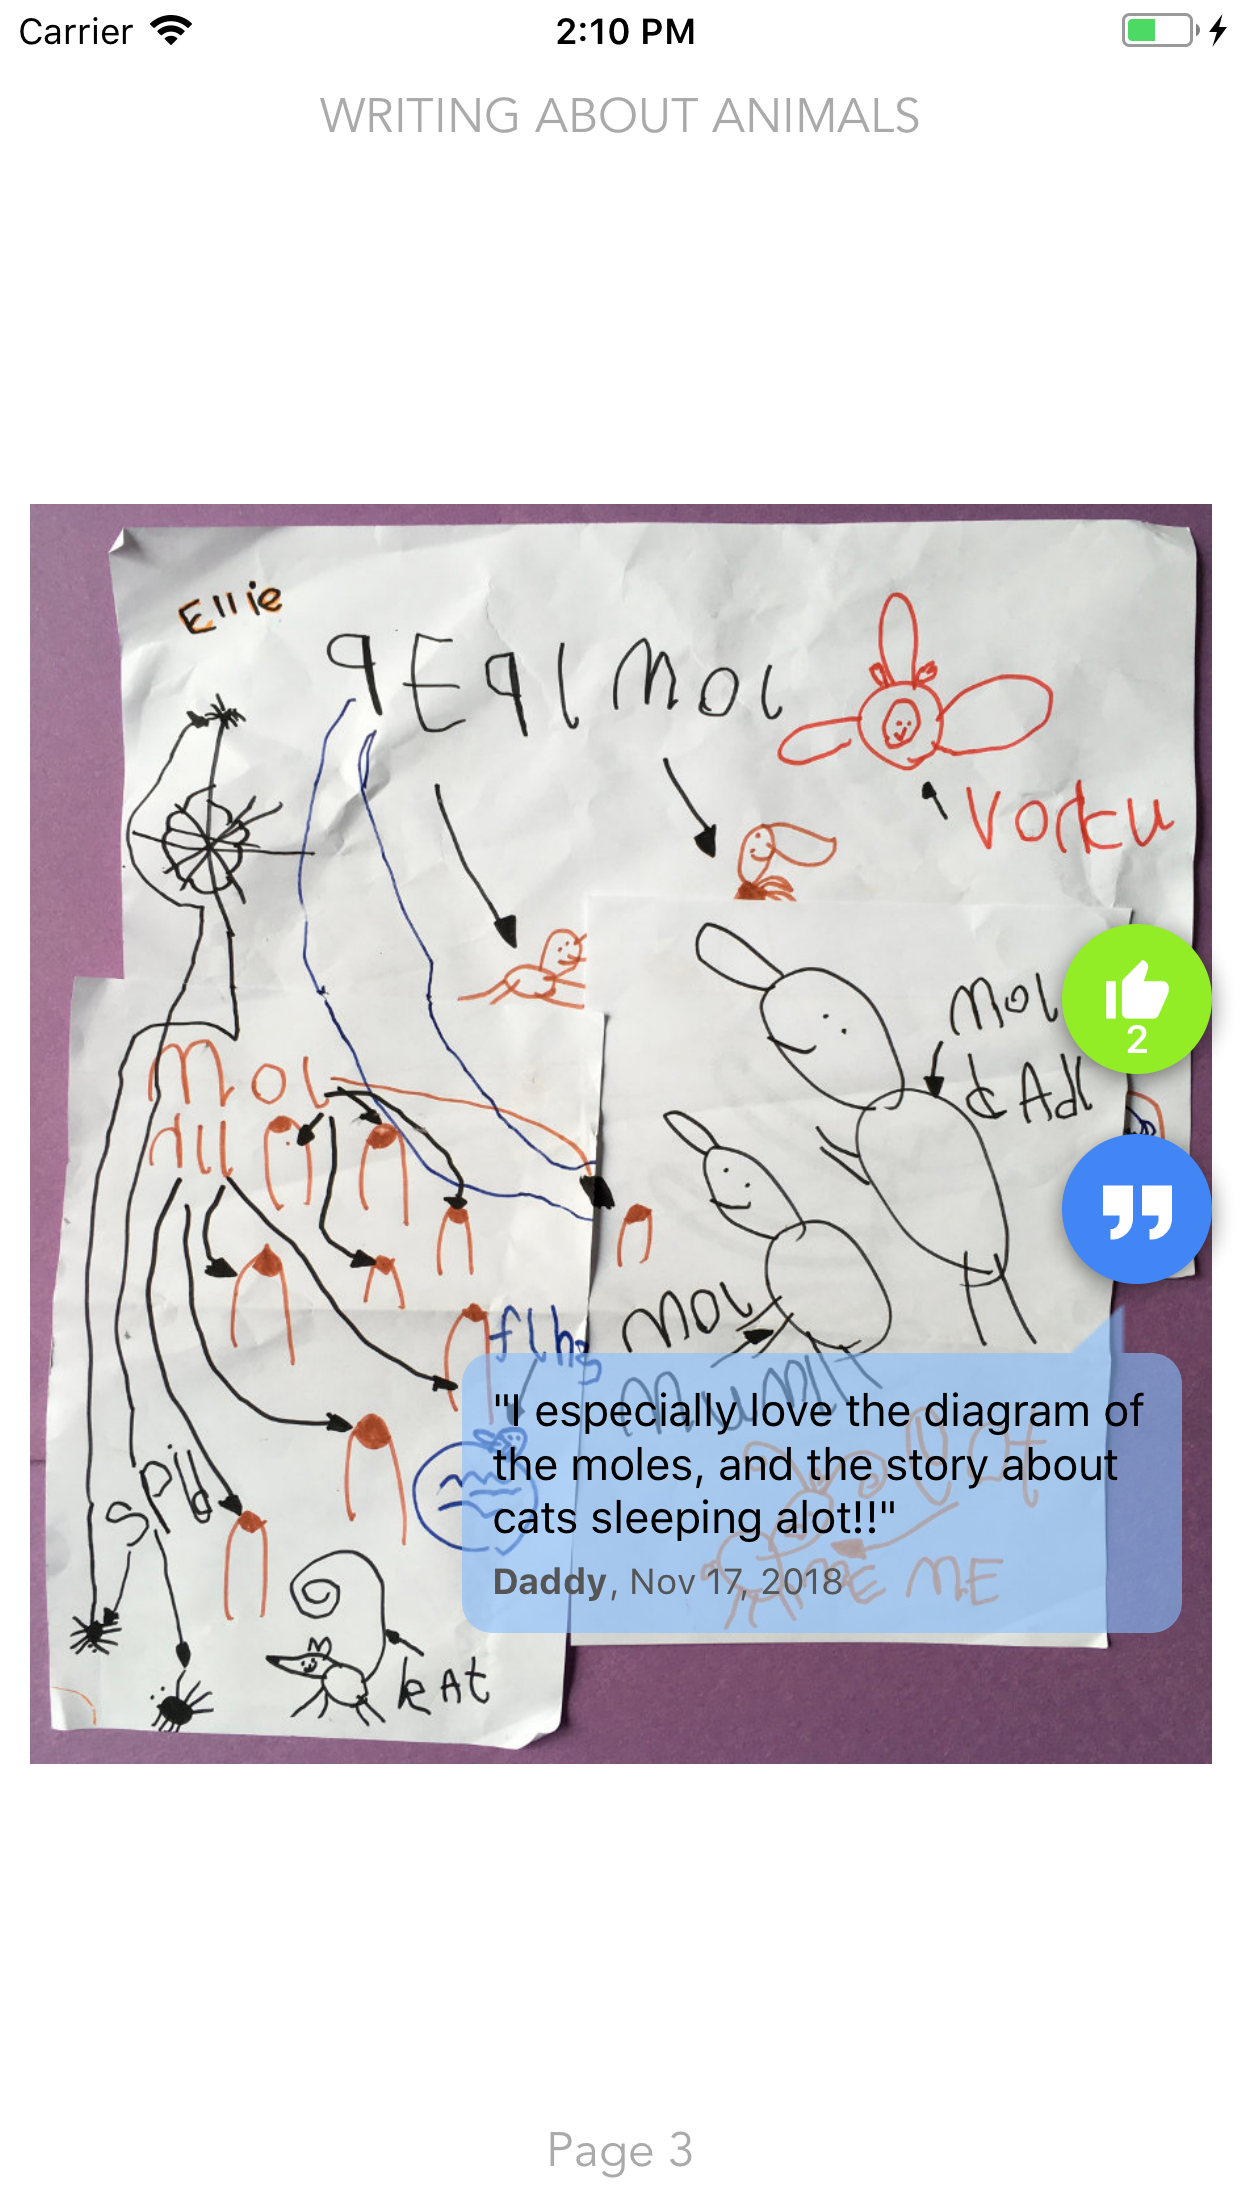 Carrier
2:10 PM
WRITING ABOUT ANIMALS
Ellie
qEql mol
Vorku
mol
dAd
mol
dll
2
flhg
mol
mumit
"I especially love the diagram of
the moles, and the story about
cats sleeping alot!!"
Daddy, Nov 17, 2018
ME ME
SPid
kAt
Page 3